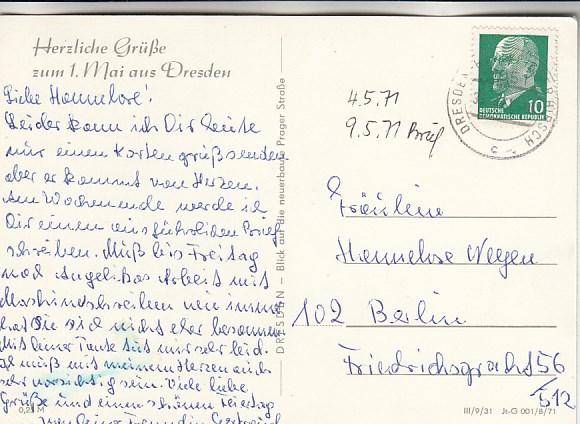 Herzliche Grüße
zum 1. Mai aus Dresden
Liebe Hannelore!
Leider kann ich Dir heute
nur einen Kartengruß senden
aber er kommt von Herzen.
Am Wochenende werde ich
Dir einen ausführlichen Brief
schreiben. Muß bis Freitag
noch Arbeit mit
Maschineschreiben
hat Die sich nicht eher besonnen
Mit Deiner Tante tut mir sehr leid.
Ich muß mit meinem Herzen auch
sehr vorsichtig sein. Viele liebe
Grüße und einen schönen Feiertag
von Deiner Freundin
0,25 M
DRESDEN – Blick auf die neuerbaute Prager Straße
4.5.71
9.5.71 Brief
DRESDEN
10
DEUTSCHE
DEMOKRATISCHE REPUBLIK
HIRSCH
Fräulein
Hannelore
102 Berlin
Friedrichsgracht 56
/512
III/9/31 Jt-G 001/8/71